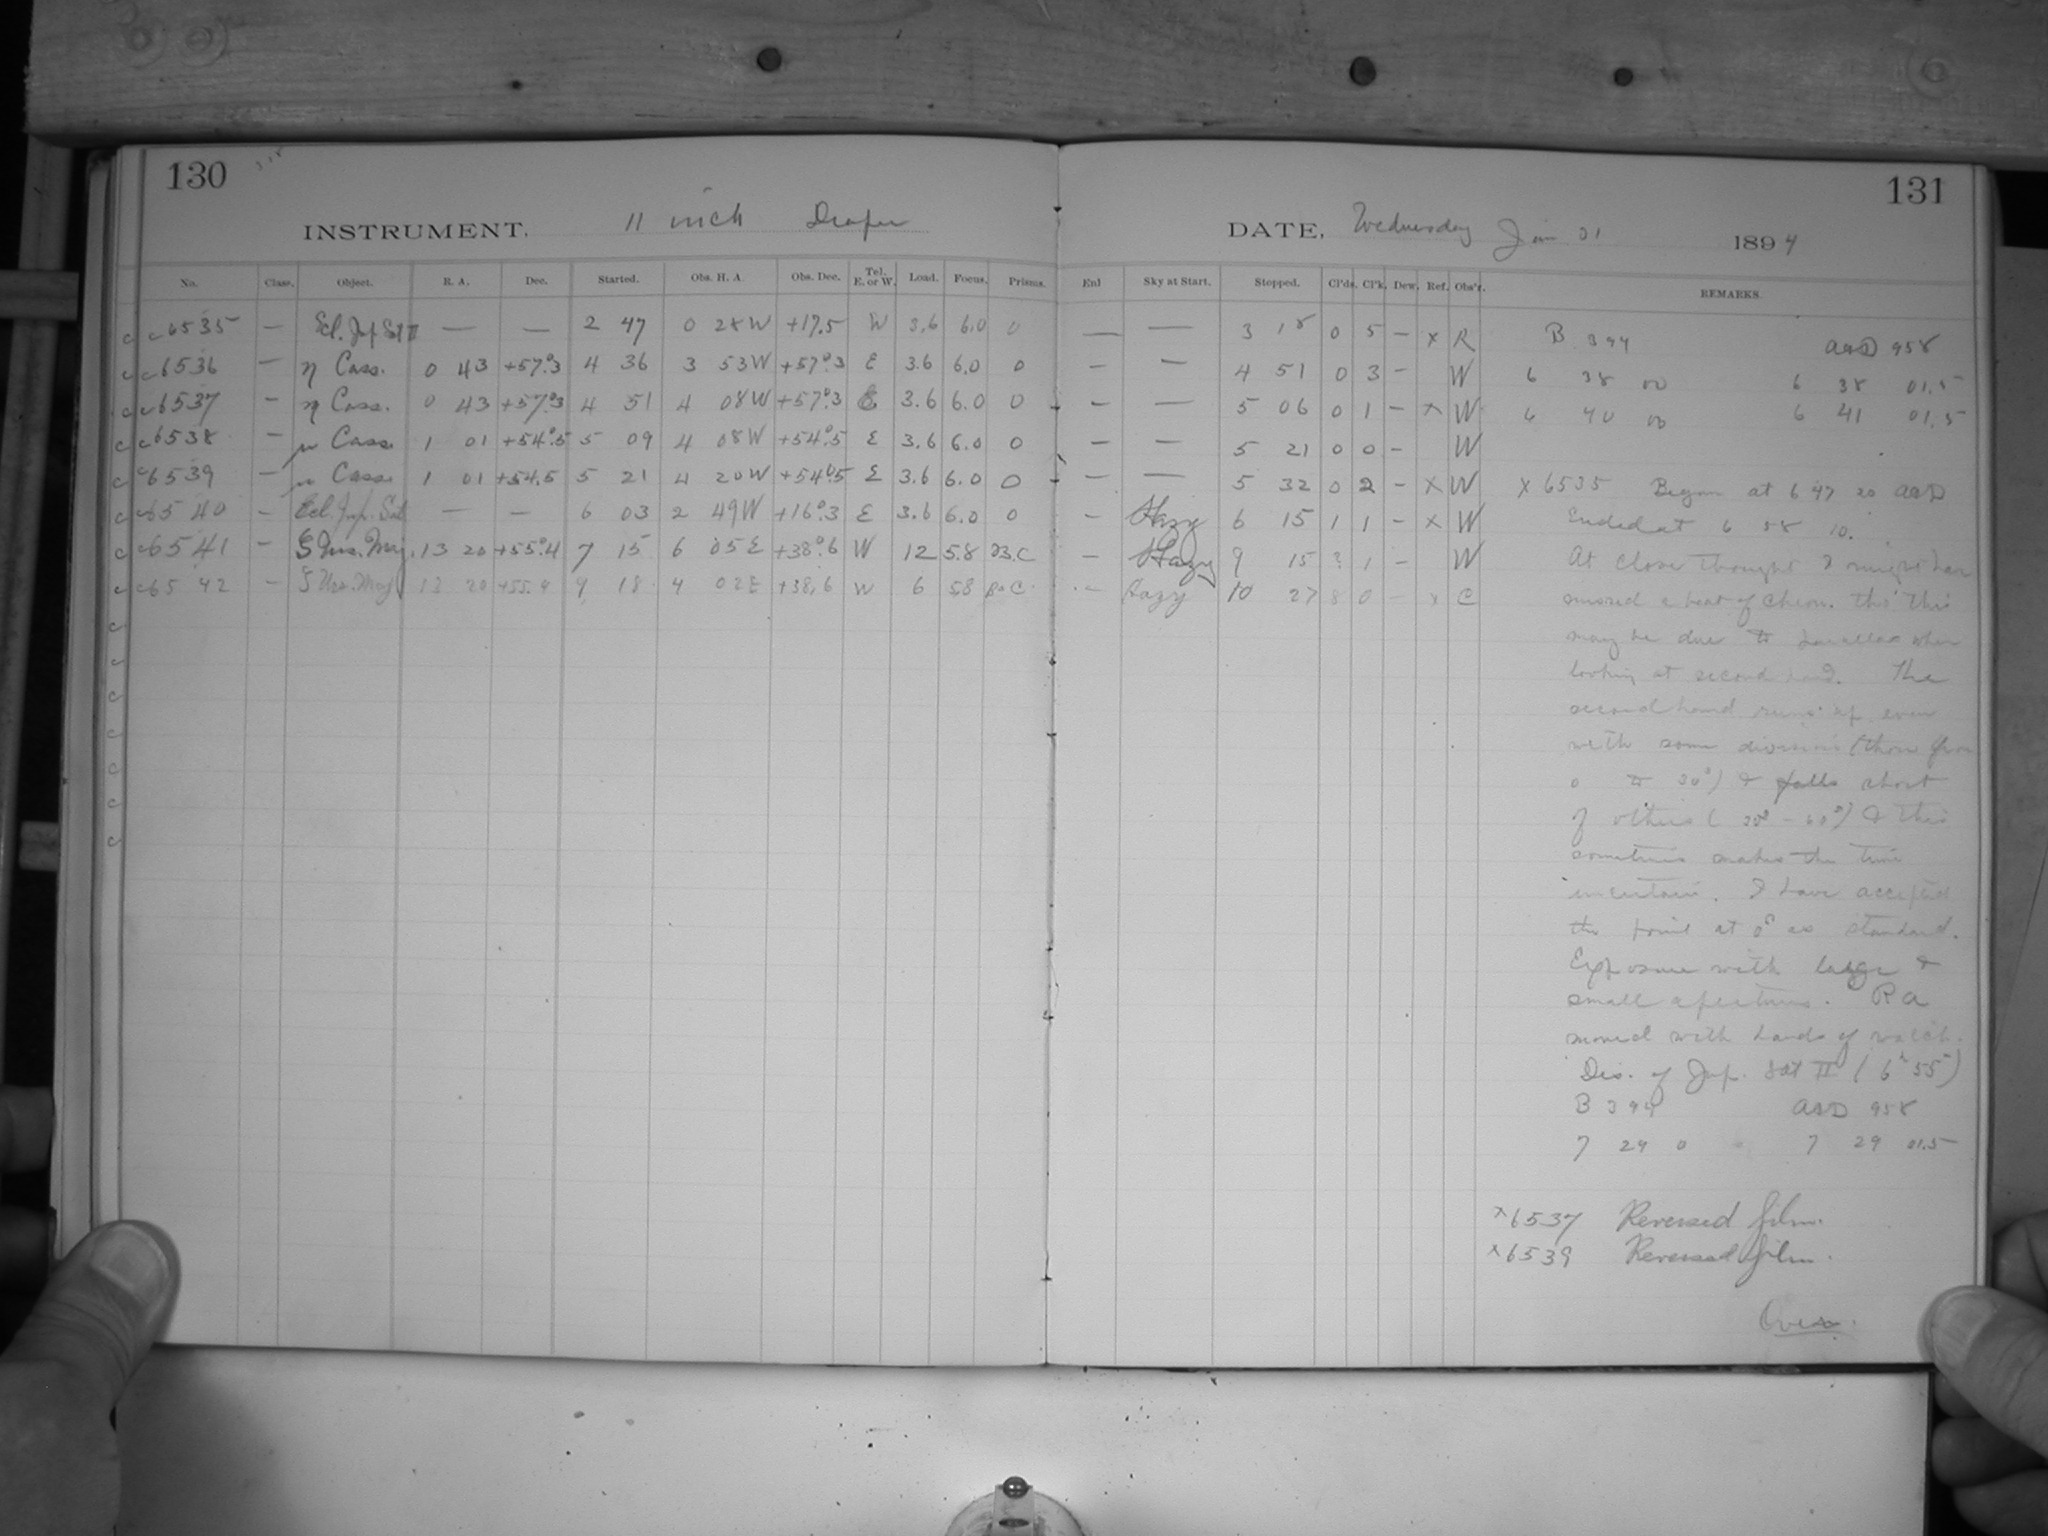 130
INSTRUMENT. 11 inch Draper
No. Class. Object. R. A. Dec. Started. Obs. H. A. Obs. Dec. Tel. E. or W. Load. Focus. Prisms.
c c 6535 — Ecl. Jup Sat II — — 2 47 0 28 W +17.5 W 3.6 6.0 0
c c 6536 — η Cass. 0 43 +57°.3 4 36 3 53 W +57°.3 E 3.6 6.0 0
c c 6537 — η Cass. 0 43 +57°.3 4 51 4 08 W +57°.3 E 3.6 6.0 0
c c 6538 — μ Cass. 1 01 +54°.5 5 09 4 08 W +54°.5 E 3.6 6.0 0
c c 6539 — μ Cass. 1 01 +54.5 5 21 4 20 W +54°.5 E 3.6 6.0 0
c c 6540 — Ecl. Jup. Sat — — 6 03 2 49 W +16°.3 E 3.6 6.0 0
c c 6541 — ζ Urs. Maj. 13 20 +55°.4 7 15 6 05 E +38°.6 W 12 5.8 B.C
c c 6542 — ζ Urs. Maj. 13 20 +55.4 9 18 4 02 E +38.6 W 6 5.8 B. C.
c
c
c
c
c
c
c
131
DATE, Wednesday Jan 31 1894
Enl Sky at Start. Stopped. Cl'ds. Cl'k. Dew. Ref. Obs'r. REMARKS.
— — 3 18 0 5 — x R B 394 A&D 958
— — 4 51 0 3 — W 6 38 00 6 38 01.5
— — 5 06 0 1 — x W 6 40 00 6 41 01.5
— — 5 21 0 0 — W
— — 5 32 0 2 — x W x 6535 Began at 6 47 20 A&D
— Hazy 6 15 1 1 — x W Ended at 6 58 10.
— Hazy 9 15 3 1 — W At close thought I might have
— Hazy 10 27 8 0 — x C missed a beat of chron. tho' this
may be due to parallax when
looking at second hand. The
second hand runs up even
with some divisions (those from
0 to 30s) & falls short
of others (30s – 60s) & this
sometimes makes the time
uncertain. I have accepted
the point at 0s as standard.
Exposure with large &
small apertures. R A
moved with hands of watch.
Dis. of Jup. Sat II (6h 55m)
B 394 A&D 958
7 29 0 7 29 01.5
x 6537 Reversed film.
x 6539 Reversed film.
Over.